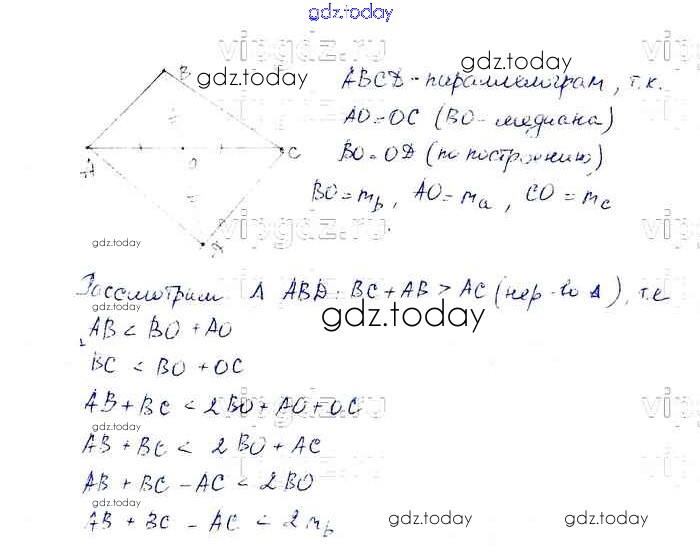 gdz.today
vipgdz.ru
B
gdz.today
ABCD - параллелограм, т.к.
gdz.today
AO = OC (BO - медиана)
A
O
C
BO = OD (по построению)
BO = m_b, AO = m_a, CO = m_c
gdz.today
Д
vipgdz.ru
Рассмотрим Δ ABD: BC + AB > AC (нер-во Δ), т.е
gdz.today
AB < BO + AO
BC < BO + OC
AB + BC < 2BO + AO + OC
vipgdz.ru
gdz.today
AB + BC < 2BO + AC
AB + BC - AC < 2BO
gdz.today
AB + BC - AC < 2m_b
gdz.today
gdz.today
gdz.today